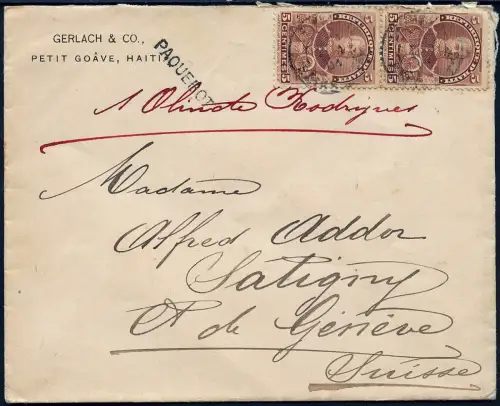 GERLACH & CO.,
PETIT GOÂVE, HAITI
PAQUEBOT
5 CENTIMES 5
5 CENTIMES 5
Olinde Rodrigues
Madame
Alfred Addor
Satigny
Ct de Génève
Suisse